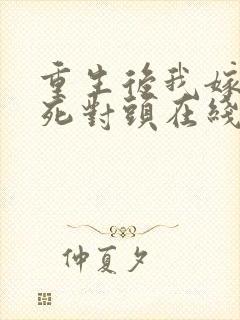 重生後我嫁
死對頭在綫
仲夏夕